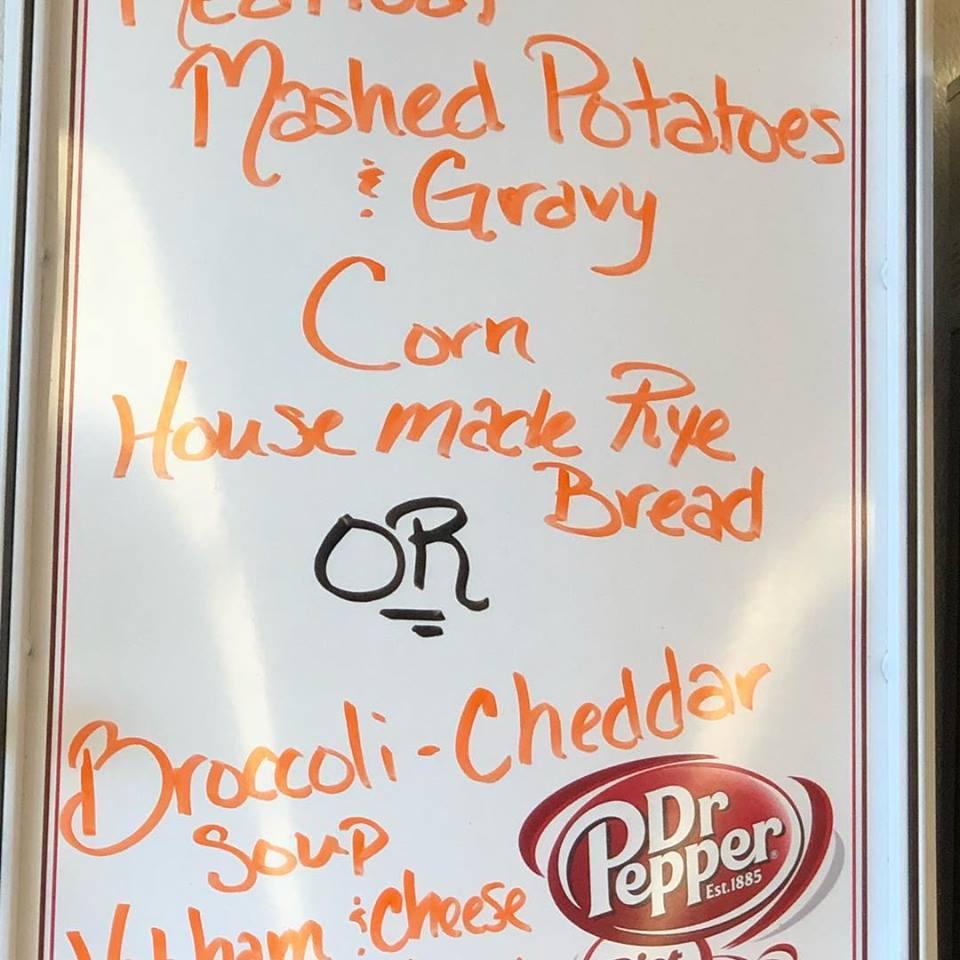 Meatloaf
Mashed Potatoes
& Gravy
Corn
House made Rye
Bread
OR
Broccoli-Cheddar
Soup
& Cheese
ham
Dr
Pepper
Est.1885